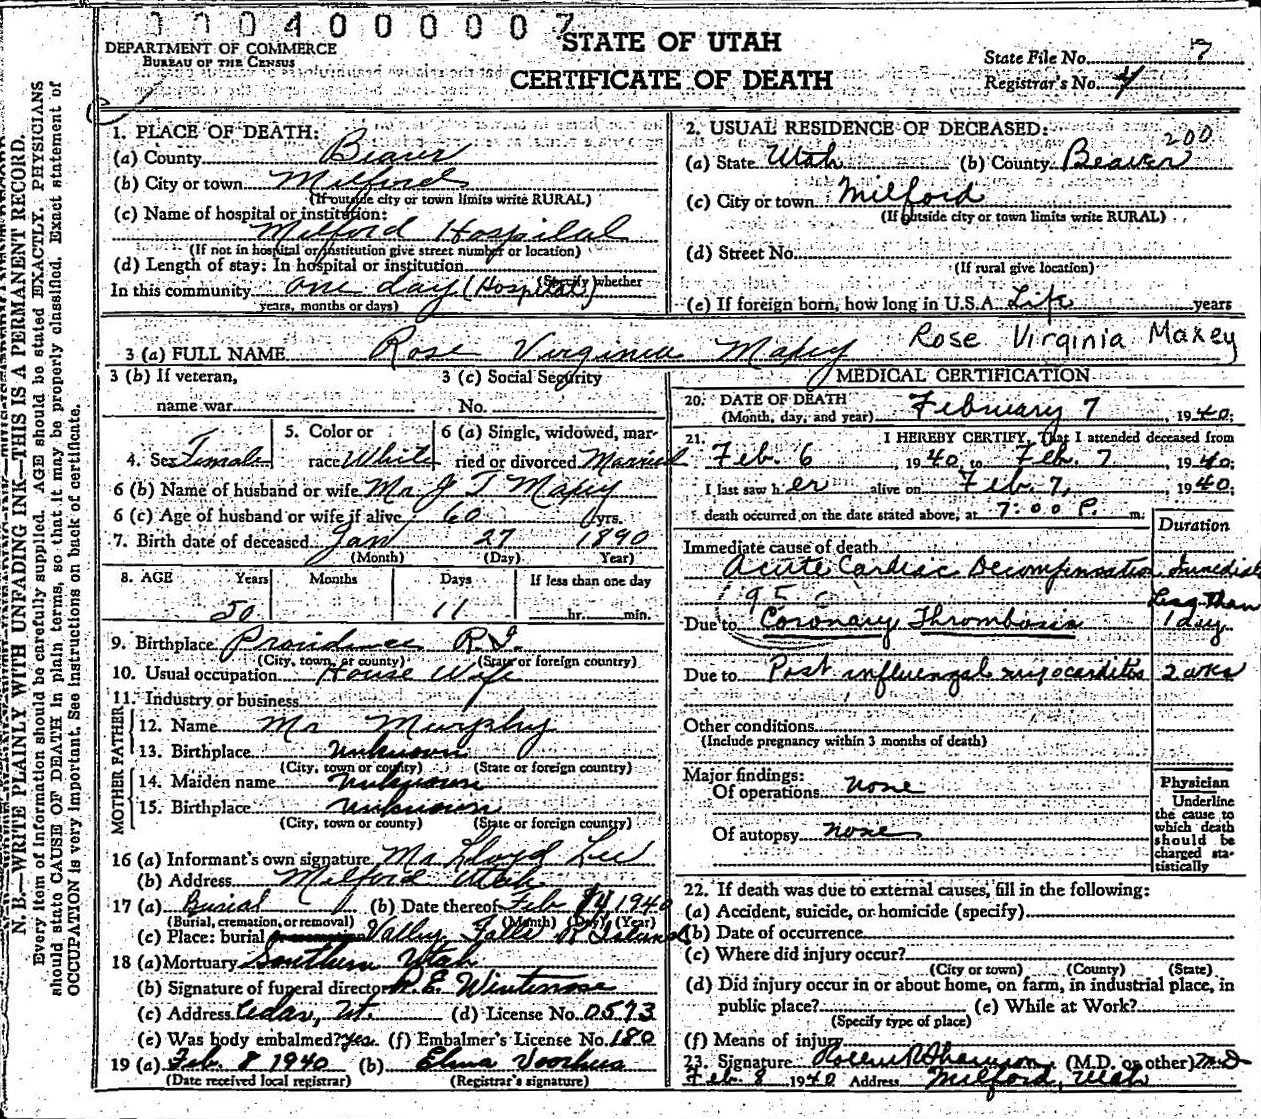 0 0 0 4 0 0 0 0 0 7
DEPARTMENT OF COMMERCE
BUREAU OF THE CENSUS
STATE OF UTAH
CERTIFICATE OF DEATH
State File No. 7
Registrar's No. 4
N. B.—WRITE PLAINLY WITH UNFADING INK—THIS IS A PERMANENT RECORD.
Every item of information should be carefully supplied. AGE should be stated EXACTLY. PHYSICIANS
should state CAUSE OF DEATH in plain terms, so that it may be properly classified. Exact statement of
OCCUPATION is very important. See instructions on back of certificate.
1. PLACE OF DEATH:
(a) County Beaver
(b) City or town Milford
(If outside city or town limits write RURAL)
(c) Name of hospital or institution:
Milford Hospital
(If not in hospital or institution give street number or location)
(d) Length of stay: In hospital or institution
(Specify whether
In this community one day (Hospital)
years, months or days)
2. USUAL RESIDENCE OF DECEASED:
200
(a) State Utah (b) County Beaver
(c) City or town Milford
(If outside city or town limits write RURAL)
(d) Street No.
(If rural give location)
(e) If foreign born, how long in U.S.A. Life years
3 (a) FULL NAME Rose Virginia Maxey Rose Virginia Maxey
3 (b) If veteran, 3 (c) Social Security
name war No.
4. Sex Female 5. Color or race White 6 (a) Single, widowed, married or divorced Married
6 (b) Name of husband or wife Mr J T Maxey
6 (c) Age of husband or wife if alive 60 yrs.
7. Birth date of deceased Jan 27 1890
(Month) (Day) Year)
8. AGE Years Months Days If less than one day
50 11 hr. min.
9. Birthplace Providence R.I.
(City, town, or county) (State or foreign country)
10. Usual occupation House Wife
11. Industry or business
FATHER
12. Name Mr Murphy
13. Birthplace unknown
(City, town or county) (State or foreign country)
MOTHER
14. Maiden name unknown
15. Birthplace unknown
(City, town or county) (State or foreign country)
16 (a) Informant's own signature Mr Lloyd Lee
(b) Address Milford Utah
17 (a) Burial (b) Date thereof Feb 14, 1940
(Burial, cremation, or removal) (Month) (Day) (Year)
(c) Place: burial Valley Falls R Island
18 (a) Mortuary Southern Utah
(b) Signature of funeral director R. E. Winterrose
(c) Address Cedar, Ut. (d) License No. 0573
(e) Was body embalmed? yes (f) Embalmer's License No. 180
19 (a) Feb. 8 1940 (b) Elma Voorhees
(Date received local registrar) (Registrar's signature)
MEDICAL CERTIFICATION
20. DATE OF DEATH
(Month, day, and year) February 7, 1940;
21. I HEREBY CERTIFY, That I attended deceased from
Feb. 6, 1940 to Feb. 7, 1940;
I last saw h er alive on Feb. 7, 1940;
death occurred on the date stated above, at 7:00 P. m.
Duration
Immediate cause of death
Acute Cardiac Decompensation
95
Less than
Due to Coronary Thrombosis 1 day
Due to Post influenzal myocarditis 2 wks
Other conditions
(Include pregnancy within 3 months of death)
Major findings:
Of operations none
Of autopsy none
Physician
Underline
the cause to
which death
should be
charged sta-
tistically
22. If death was due to external causes, fill in the following:
(a) Accident, suicide, or homicide (specify)
(b) Date of occurrence
(c) Where did injury occur?
(City or town) (County) (State)
(d) Did injury occur in or about home, on farm, in industrial place, in
public place? (e) While at Work?
(Specify type of place)
(f) Means of injury
23. Signature (M.D. or other) M.D
Feb. 8 1940 Address Milford, Utah